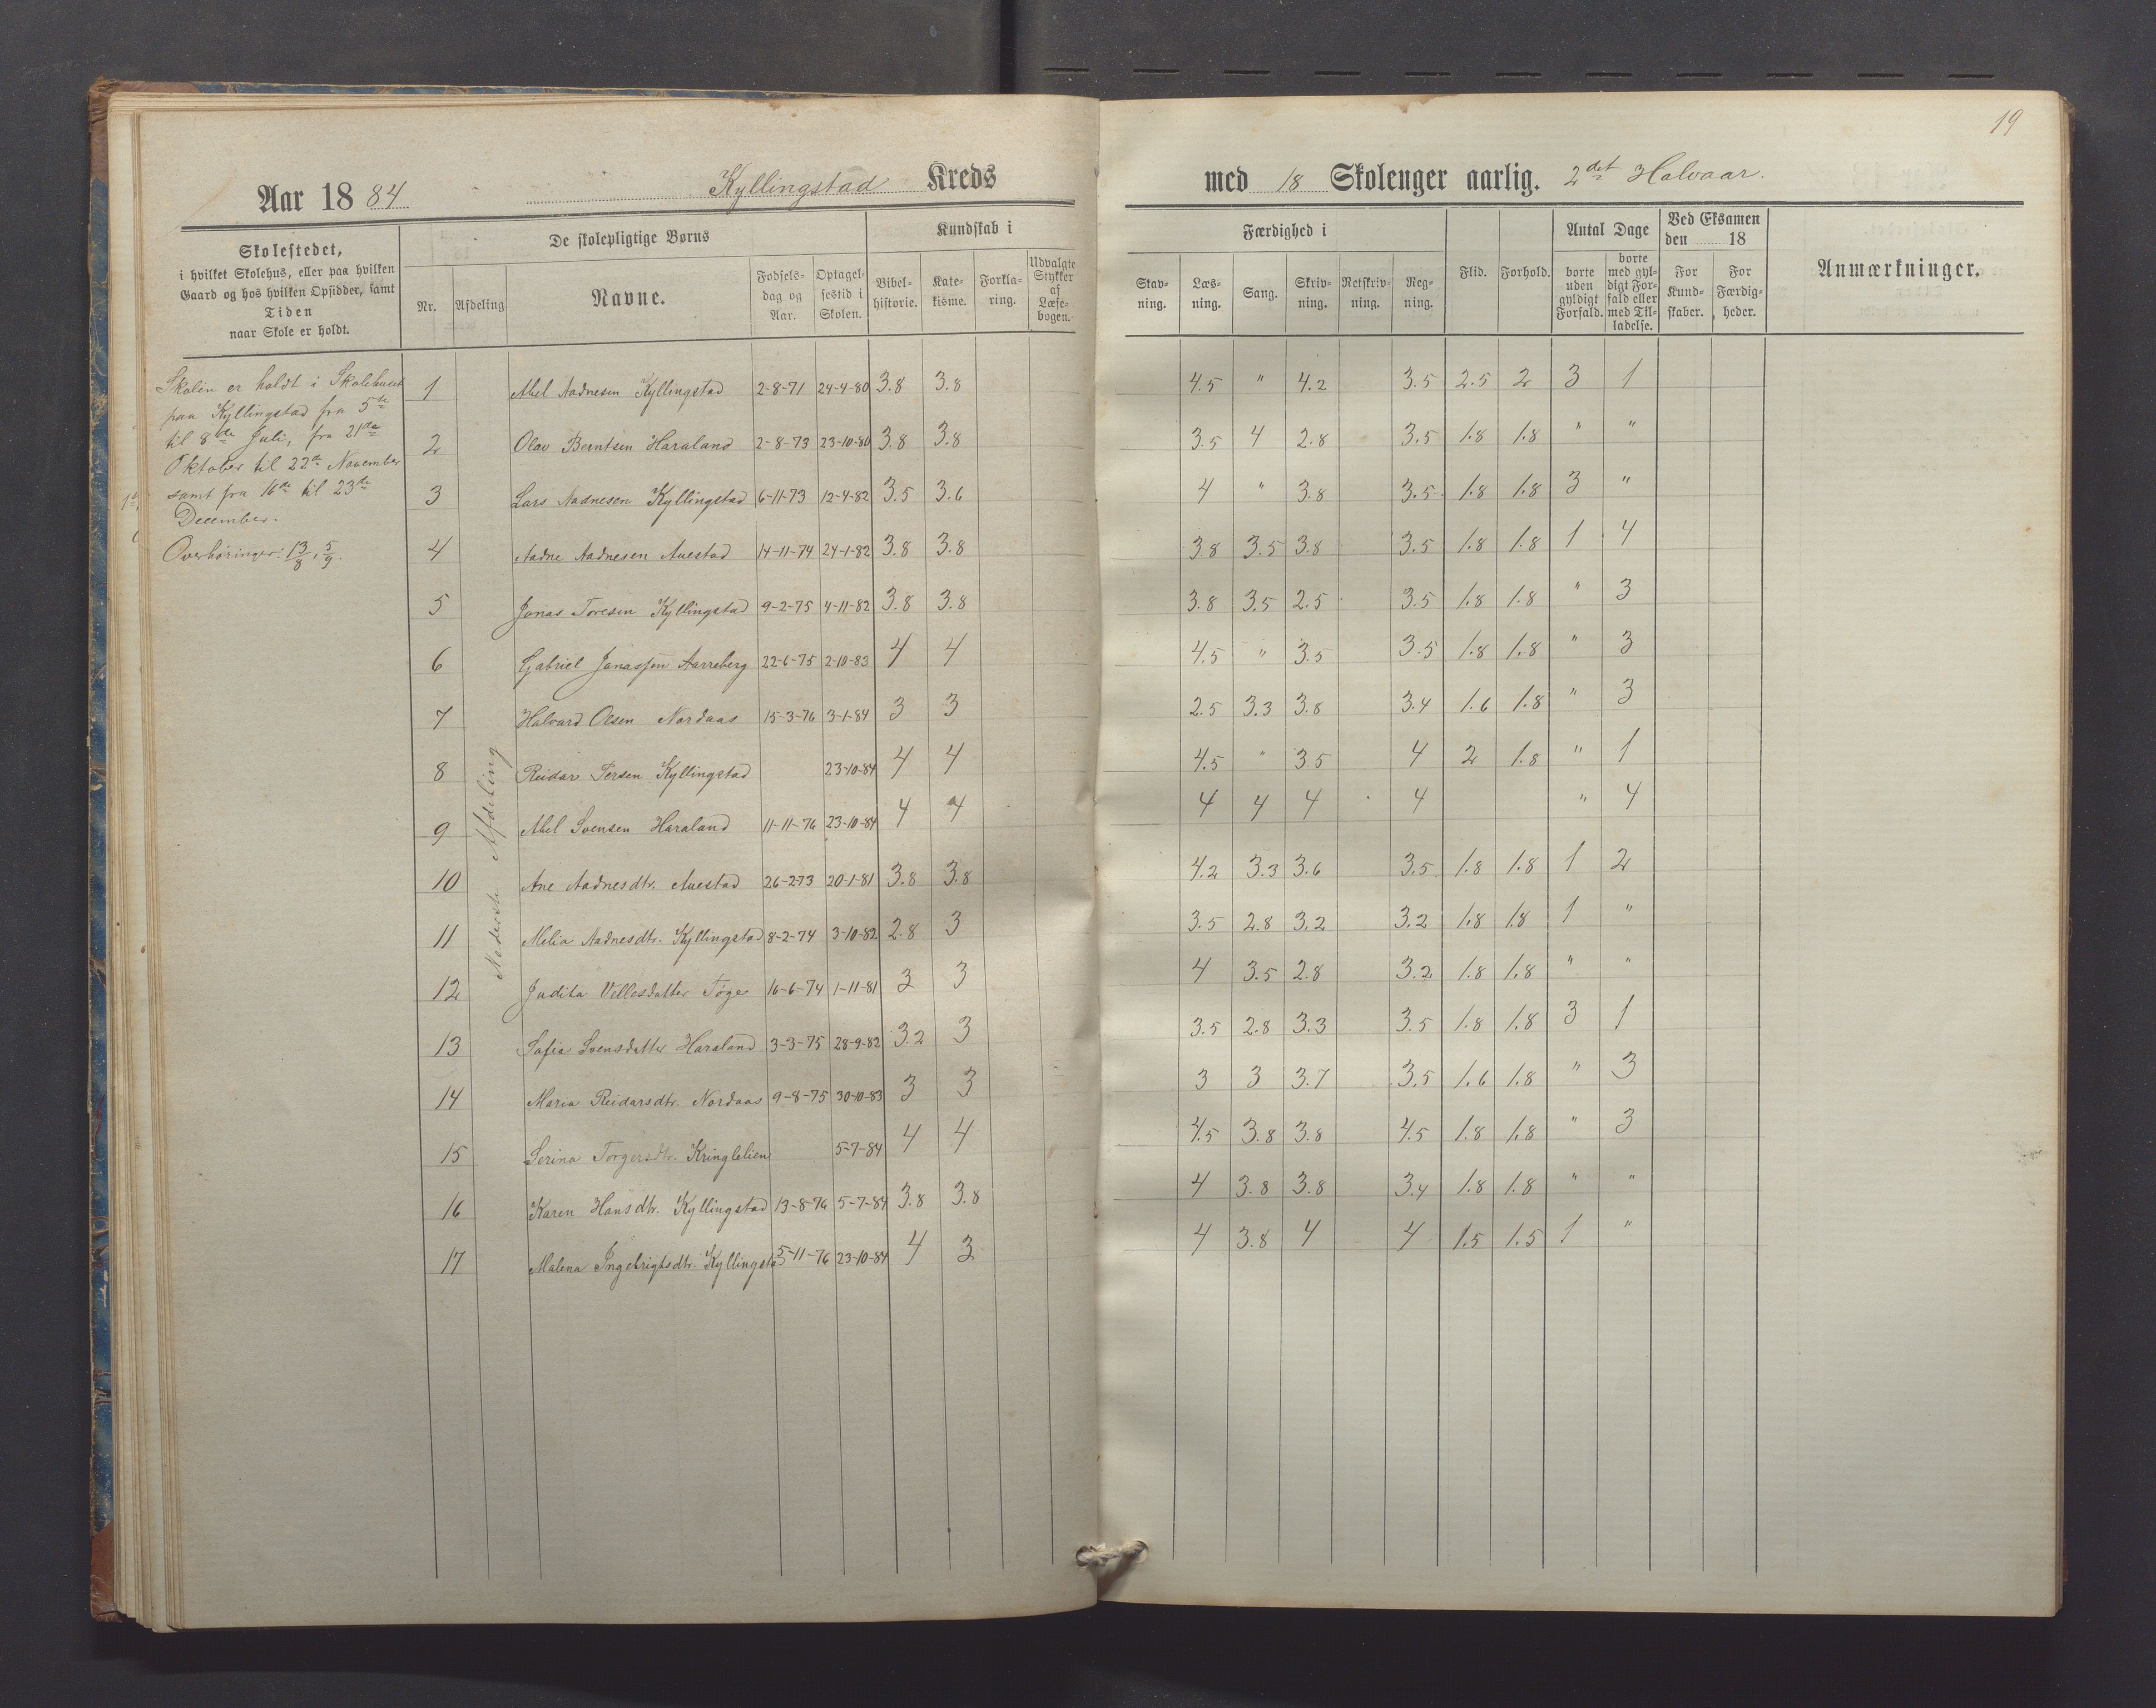 19
Aar 1884 Kyllingstad Kreds med 18 Skoleuger aarlig. 2det Halvaar.
Skolestedet,
i hvilket Skolehus, eller paa hvilken
Gaard og hos hvilken Opsidder, samt
Tiden
naar Skole er holdt.
De skolepligtige Børns
Nr. Afdeling Navne. Fødsels-dag og Aar. Optagel-sestid i Skolen.
Kundskab i
Bibel-historie. Kate-kisme. Forkla-ring. Udvalgte Stykker af Læse-bogen.
Færdighed i
Stav-ning. Læs-ning. Sang. Skriv-ning. Retskriv-ning. Reg-ning.
Flid. Forhold.
Antal Dage
borte uden gyldigt Forfald. borte med gyl-digt For-fald eller med Til-ladelse.
Ved Eksamen den 18
For Kund-skaber. For Færdig-heder.
Anmærkninger.
Skolen er holdt i Skolehuset
paa Kyllingstad fra 5te
til 8de Juli, fra 21de
Oktober til 22de November
samt fra 16de til 23de
December.
Overhøringer: 13/8, 5/9.
Nederste Afdeling
1 Abel Aadnesen Kyllingstad 2-8-71 24-4-80 3.8 3.8 4.5 " 4.2 3.5 2.5 2 3 1
2 Olav Berntsen Haraland 2-8-73 23-10-80 3.8 3.8 3.5 4 2.8 3.5 1.8 1.8 " "
3 Lars Aadnesen Kyllingstad 6-11-73 12-4-82 3.5 3.6 4 " 3.8 3.5 1.8 1.8 3 "
4 Aadne Aadnesen Auestad 14-11-74 24-1-82 3.8 3.8 3.8 3.5 3.8 3.5 1.8 1.8 1 4
5 Jonas Toresen Kyllingstad 9-2-75 4-11-82 3.8 3.8 3.8 3.5 2.5 3.5 1.8 1.8 " 3
6 Gabriel Jonassen Aarreberg 22-6-75 2-10-83 4 4 4.5 " 3.5 3.5 1.8 1.8 " 3
7 Halvard Olsen Nordaas 15-3-76 3-1-84 3 3 2.5 3.3 3.8 3.4 1.6 1.8 " 3
8 Reidar Persen Kyllingstad 23-10-84 4 4 4.5 " 3.5 4 2 1.8 " 1
9 Abel Svensen Haraland 11-11-76 23-10-84 4 4 4 4 4 4 " 4
10 Ane Aadnesdtr. Auestad 26-2-73 20-1-81 3.8 3.8 4.2 3.3 3.6 3.5 1.8 1.8 1 2
11 Melia Aadnesdtr. Kyllingstad 8-2-74 3-10-82 2.8 3 3.5 2.8 3.2 3.2 1.8 1.8 1 "
12 Judita Vellesdatter Tøge 16-6-74 1-11-81 3 3 4 3.5 2.8 3.2 1.8 1.8 " "
13 Sofia Svensdatter Haraland 3-3-75 28-9-82 3.2 3 3.5 2.8 3.3 3.5 1.8 1.8 3 1
14 Maria Reidarsdtr. Nordaas 9-8-75 30-10-83 3 3 3 3 3.7 3.5 1.6 1.8 " 3
15 Serina Torgersdtr. Kringlelien 5-7-84 4 4 4.5 3.8 3.8 4.5 1.8 1.8 " 3
16 Karen Hansdtr. Kyllingstad 13-8-76 5-7-84 3.8 3.8 4 3.8 3.8 3.4 1.8 1.8 " "
17 Malena Ingebrigtsdtr. Kyllingstad 5-11-76 23-10-84 4 3 4 3.8 4 4 1.5 1.5 1 "